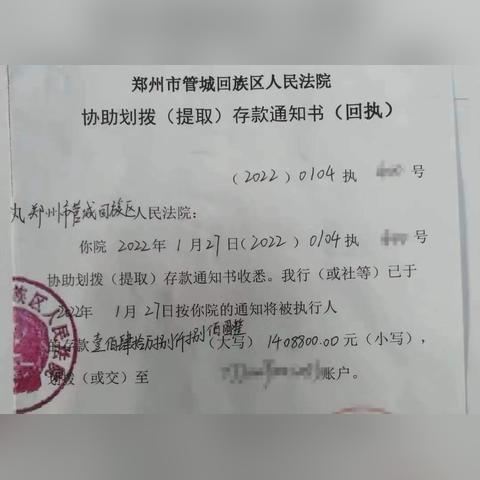 郑州市管城回族区人民法院
协助划拨（提取）存款通知书（回执）
（2022）0104执 号
郑州市管城回族区人民法院：
你院2022年1月27日（2022）0104执 号
协助划拨（提取）存款通知书收悉。我行（或社等）已于
2022年1月27日按你院的通知将被执行人
的存款壹佰肆拾万捌仟捌佰圆整（大写）1408800.00元（小写），
划拨（或交）至 账户。
族区人民法院